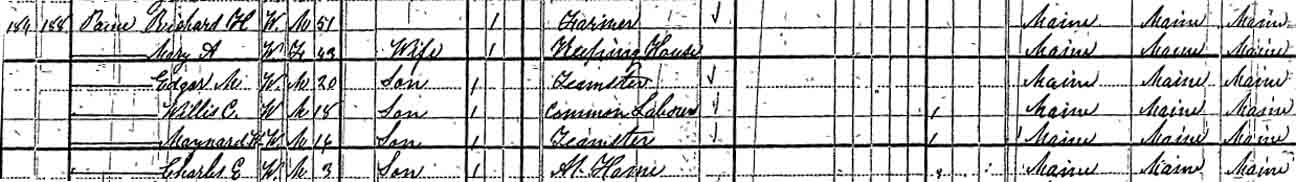 189 188 Paine Richard H W. M 51 1 Farmer Maine Maine Maine
Mary A W F 43 Wife 1 Keeping House Maine Maine Maine
Edgar M W. M 20 Son 1 Teamster Maine Maine Maine
Willis C. W M 18 Son 1 Common Labour 1 Maine Maine Maine
Maynard H W. M 16 Son 1 Teamster 1 Maine Maine Maine
Charles E W M 3 Son 1 At Home Maine Maine Maine